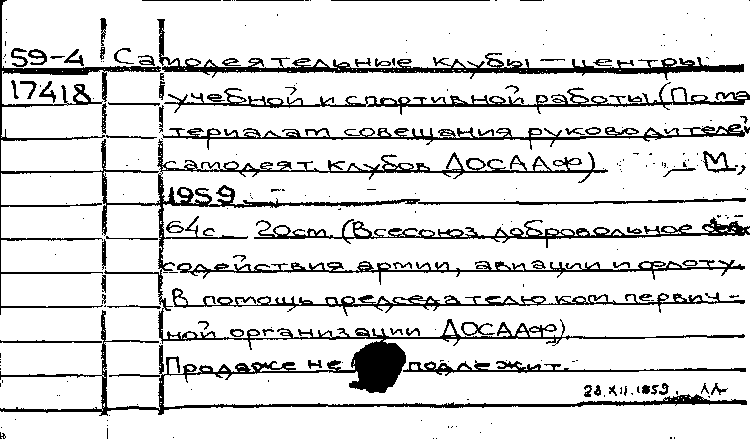 59-4 Самодеятельные клубы — центры
17418 учебной и спортивной работы. (По ма
териалам совещания руководителей
самодеят. клубов ДОСААФ) , М.,
1959.
64с. 20см. (Всесоюз. добровольное
содействия армии, авиации и флоту.
(В помощь председателю ком. первич-
ной организации ДОСААФ).
Продаже не подлежит.
28.XII.1959.